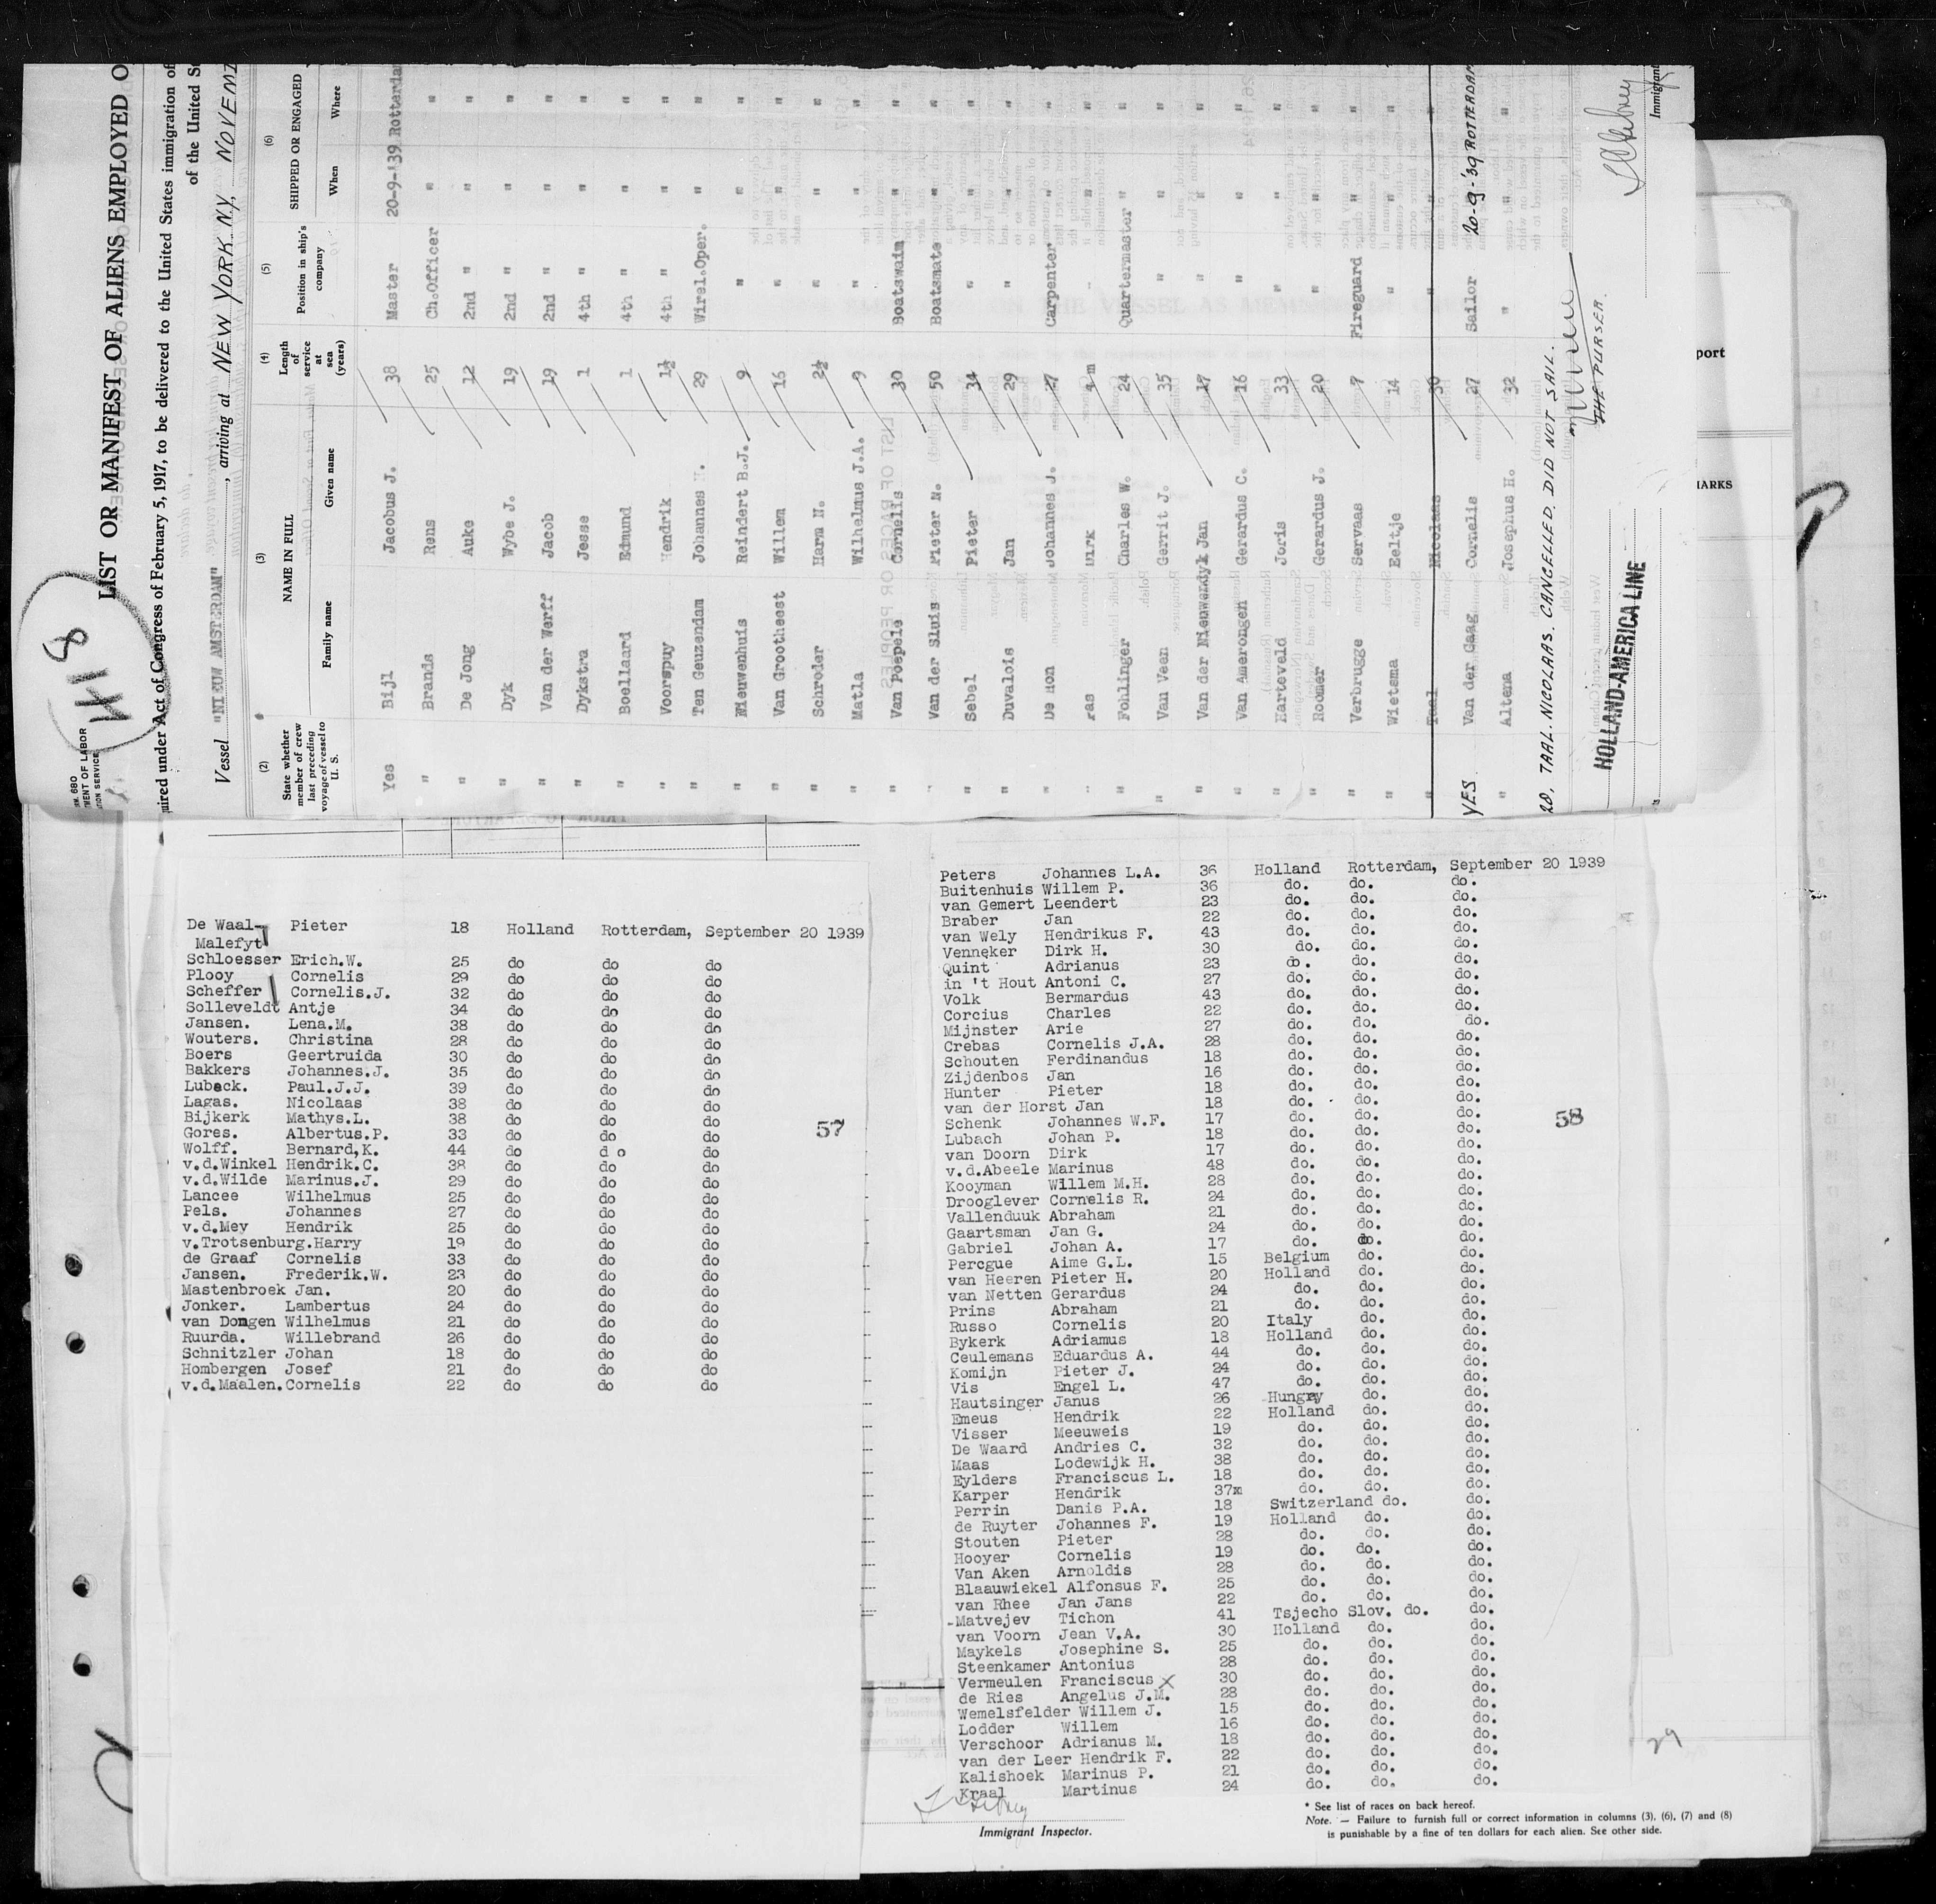 H8
RM. 680
MENT OF LABOR
TION SERVICE
LIST OR MANIFEST OF ALIENS EMPLOYED O
uired under Act of Congress of February 5, 1917, to be delivered to the United States immigration of
of the United S
Vessel "NIEUW AMSTERDAM", arriving at NEW YORK. N.Y, NOVEM
(2) (3) (4) (5) (6)
State whether member of crew last preceding voyage of vessel to U. S.
NAME IN FULL
Family name Given name
Length of service at sea (years)
Position in ship's company
SHIPPED OR ENGAGED
When Where
Yes Bijl Jacobus J. 38 Master 20-9-'39 Rotterda
" Brands Rens 25 Ch.Officer " "
" De Jong Auke 12 2nd " " "
" Dyk Wybe J. 19 2nd " " "
" Van der Werff Jacob 19 2nd " " "
" Dykstra Jesse 1 4th " " "
" Boellaard Edmund 1 4th " " "
" Voorspuy Hendrik 1½ 4th " " "
" Ten Geuzendam Johannes H. 29 Wirel.Oper. " "
" Nieuwenhuis Reindert B.J. 9 " " "
" Van Grootheest Willem 16 " " "
" Schroder Harm N. 2½ " " "
" Matla Wilhelmus J.A. 9 " " "
" Van Poepele Cornelis 30 Boatswain " "
" Van der Sluis Pieter N. 50 Boatsmate " "
" Sebel Pieter 34 " " "
" Duvalois Jan 29 " " "
" De Hon Johannes J. 27 Carpenter " "
" Pas Dirk 4 m " " "
" Fohlinger Charles W. 24 Quartermaster " "
" Van Veen Gerrit J. 35 " " "
" Van der Nieuwendyk Jan 17 " " "
" Van Amerongen Gerardus C. 16 " " "
" Harteveld Joris 33 " " "
" Roomer Gerardus J. 20 " " "
" Verbrugge Servaas 7 Fireguard " "
" Wietsma Eeltje 14 " " "
" Taal Nicolaas 30 " " "
YES Van der Gaag Cornelis 27 Sailor 20-9-'39 ROTTERDAM
" Altena Josephus H. 32 " " "
28. TAAL. NICOLAAS. CANCELLED. DID NOT SAIL.
THE PURSER.
HOLLAND-AMERICA LINE
Immigrant
port
MARKS
De Waal- Pieter 18 Holland Rotterdam, September 20 1939
Malefyt
Schloesser Erich.W. 25 do do do
Plooy Cornelis 29 do do do
Scheffer Cornelis.J. 32 do do do
Solleveldt Antje 34 do do do
Jansen. Lena.M. 38 do do do
Wouters. Christina 28 do do do
Boers Geertruida 30 do do do
Bakkers Johannes.J. 35 do do do
Lubeck. Paul.J.J. 39 do do do
Lagas. Nicolaas 38 do do do
Bijkerk Mathys.L. 38 do do do
Gores. Albertus.P. 33 do do do
57
Wolff. Bernard,K. 44 do d o do
v.d.Winkel Hendrik.C. 38 do do do
v.d.Wilde Marinus.J. 29 do do do
Lancee Wilhelmus 25 do do do
Pels. Johannes 27 do do do
v.d.Mey Hendrik 25 do do do
v.Trotsenburg.Harry 19 do do do
de Graaf Cornelis 33 do do do
Jansen. Frederik.W. 23 do do do
Mastenbroek Jan. 20 do do do
Jonker. Lambertus 24 do do do
van Dongen Wilhelmus 21 do do do
Ruurda. Willebrand 26 do do do
Schnitzler Johan 18 do do do
Hombergen Josef 21 do do do
v.d.Maalen. Cornelis 22 do do do
Peters Johannes L.A. 36 Holland Rotterdam, September 20 1939
Buitenhuis Willem P. 36 do. do. do.
van Gemert Leendert 23 do. do. do.
Braber Jan 22 do. do. do.
van Wely Hendrikus F. 43 do. do. do.
Venneker Dirk H. 30 do. do. do.
Quint Adrianus 23 do. do. do.
in 't Hout Antoni C. 27 do. do. do.
Volk Bermardus 43 do. do. do.
Corcius Charles 22 do. do. do.
Mijnster Arie 27 do. do. do.
Crebas Cornelis J.A. 28 do. do. do.
Schouten Ferdinandus 18 do. do. do.
Zijdenbos Jan 16 do. do. do.
Hunter Pieter 18 do. do. do.
van der Horst Jan 18 do. do. do.
Schenk Johannes W.F. 17 do. do. do.
58
Lubach Johan P. 18 do. do. do.
van Doorn Dirk 17 do. do. do.
v.d.Abeele Marinus 48 do. do. do.
Kooyman Willem M.H. 28 do. do. do.
Drooglever Cornelis R. 24 do. do. do.
Vallenduuk Abraham 21 do. do. do.
Gaartsman Jan G. 24 do. do. do.
Gabriel Johan A. 17 do. do. do.
Percgue Aime G.L. 15 Belgium do. do.
van Heeren Pieter H. 20 Holland do. do.
van Netten Gerardus 24 do. do. do.
Prins Abraham 21 do. do. do.
Russo Cornelis 20 Italy do. do.
Bykerk Adriamus 18 Holland do. do.
Ceulemans Eduardus A. 44 do. do. do.
Komijn Pieter J. 24 do. do. do.
Vis Engel L. 47 do. do. do.
Hautsinger Janus 26 Hungry do. do.
Emeus Hendrik 22 Holland do. do.
Visser Meeuweis 19 do. do. do.
De Waard Andries C. 32 do. do. do.
Maas Lodewijk H. 38 do. do. do.
Eylders Franciscus L. 18 do. do. do.
Karper Hendrik 37x do. do. do.
Perrin Danis P.A. 18 Switzerland do. do.
de Ruyter Johannes F. 19 Holland do. do.
Stouten Pieter 28 do. do. do.
Hooyer Cornelis 19 do. do. do.
Van Aken Arnoldis 28 do. do. do.
Blaauwiekel Alfonsus F. 25 do. do. do.
van Rhee Jan Jans 22 do. do. do.
-Matvejev Tichon 41 Tsjecho Slov. do. do.
van Voorn Jean V.A. 30 Holland do. do.
Maykels Josephine S. 25 do. do. do.
Steenkamer Antonius 28 do. do. do.
Vermeulen Franciscus X 30 do. do. do.
de Ries Angelus J.M. 28 do. do. do.
Wemelsfelder Willem J. 15 do. do. do.
Lodder Willem 16 do. do. do.
Verschoor Adrianus M. 18 do. do. do.
van der Leer Hendrik F. 22 do. do. do.
Kalishoek Marinus P. 21 do. do. do.
Kraal Martinus 24 do. do. do.
29
Immigrant Inspector.
* See list of races on back hereof.
Note. — Failure to furnish full or correct information in columns (3), (6), (7) and (8)
is punishable by a fine of ten dollars for each alien. See other side.